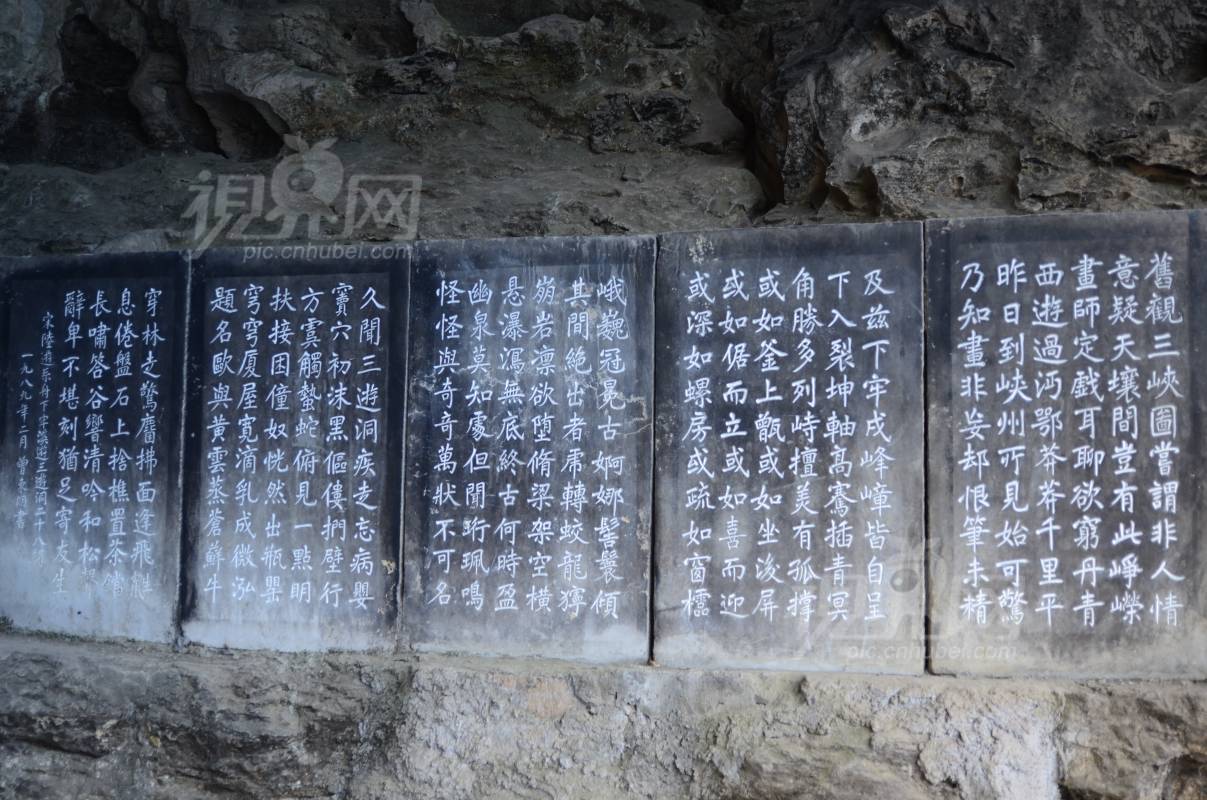 舊觀三峽圖嘗謂非人情
意疑天壤間豈有此崢嶸
畫師定戲耳聊欲窮丹青
西遊過沔鄂莽莽千里平
昨日到峽州所見始可驚
乃知畫非妄却恨筆未精
及兹下牢戍峰嶂皆自呈
下入裂坤軸高騫插青冥
角勝多列峙擅美有孤撑
或如釜上甑或如坐後屏
或如倨而立或如喜而迎
或深如螺房或疏如窗櫺
峨巍冠冕古婀娜髻鬟傾
其間絶出者虎轉蛟龍獰
崩岩凛欲堕脩梁架空横
悬瀑瀉無底終古何時盈
幽泉莫知處但聞珩珮鳴
怪怪與奇奇萬狀不可名
久聞三遊洞疾走忘病嬰
竇穴初沫黑傴僂捫壁行
方虞觸蟄蛇俯見一點明
扶接困僮奴恍然出瓶罌
穹穹厦屋寛滴乳成微泓
題名歐與黄雲蒸蒼蘚平
穿林走驚麕拂面逢飛鼪
息倦盤石上拾樵置茶鐺
長嘯答谷響清吟和松聲
辭卑不堪刻猶足寄友生
宋陸游系舟下牢溪遊三遊洞二十八韵
一九八九年二月
視界网
pic.cnhubei.com
pic.cnhubei.com